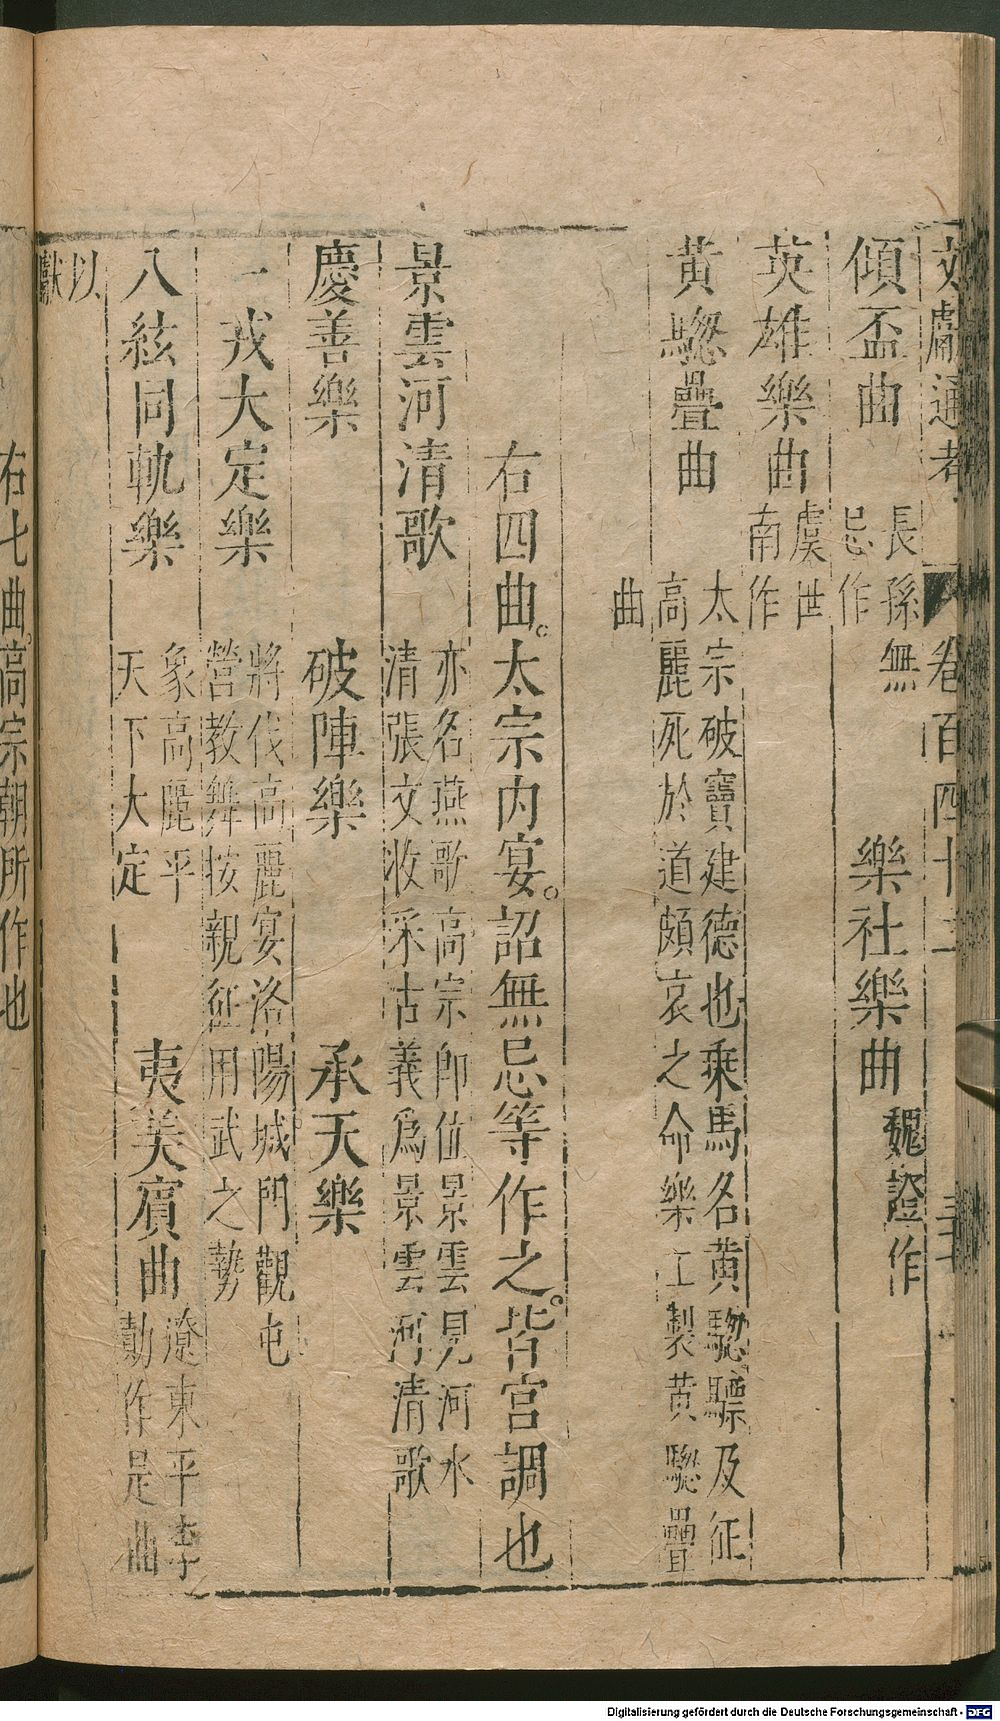 文獻通考 卷百四十二
傾盃曲 長孫無
忌作 樂社樂曲 魏證作
英雄樂曲 虞世
南作
黃驄疊曲 太宗破竇建德也乗馬名黃驄驃及征
高麗死於道頗哀之命樂工製黃驄疊
曲
右四曲。太宗内宴。詔無忌等作之。皆宮調也
景雲河清歌 亦名燕歌高宗即位景雲見河水
清張文收采古義爲景雲河清歌
慶善樂 破陣樂 承天樂
一戎大定樂 將伐高麗宴洛陽城門觀屯
營教舞按親征用武之勢
八絃同軌樂 象高麗平
天下大定 夷美賓曲 遼東平李
勣作是曲
以
獻
右七曲。高宗朝所作也
Digitalisierung gefördert durch die Deutsche Forschungsgemeinschaft - DFG